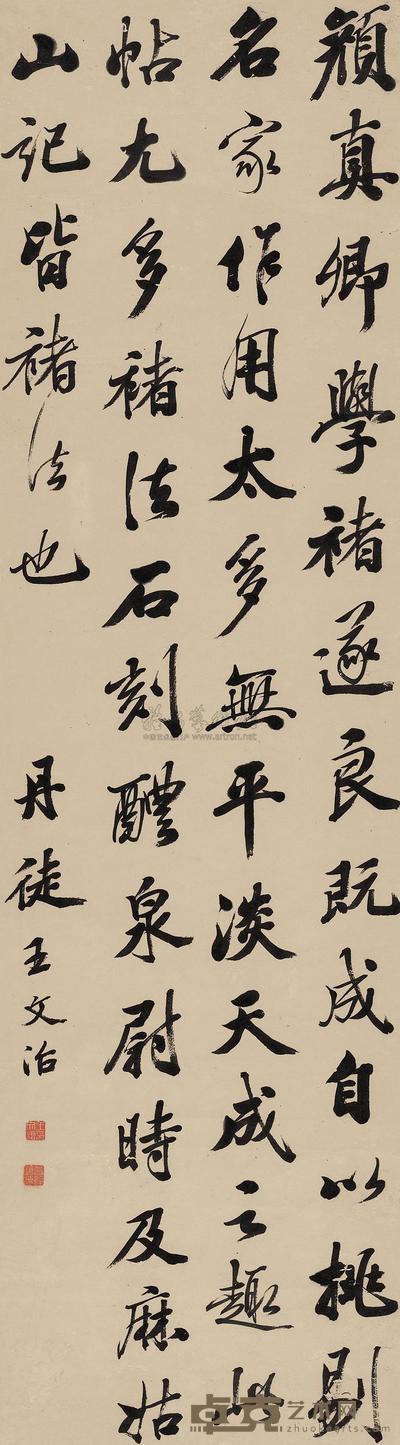 顏真卿學褚遂良既成自以挑剔
名家作用太多無平淡天成之趣此
帖尤多褚法石刻醴泉尉時及麻姑
山記皆褚法也
丹徒王文治
www.artron.net
卓克艺术网